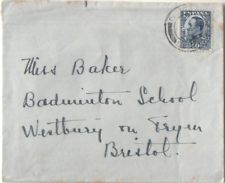 ESPAÑA
Miss Baker
Badminton School
Westbury on Trym
Bristol.